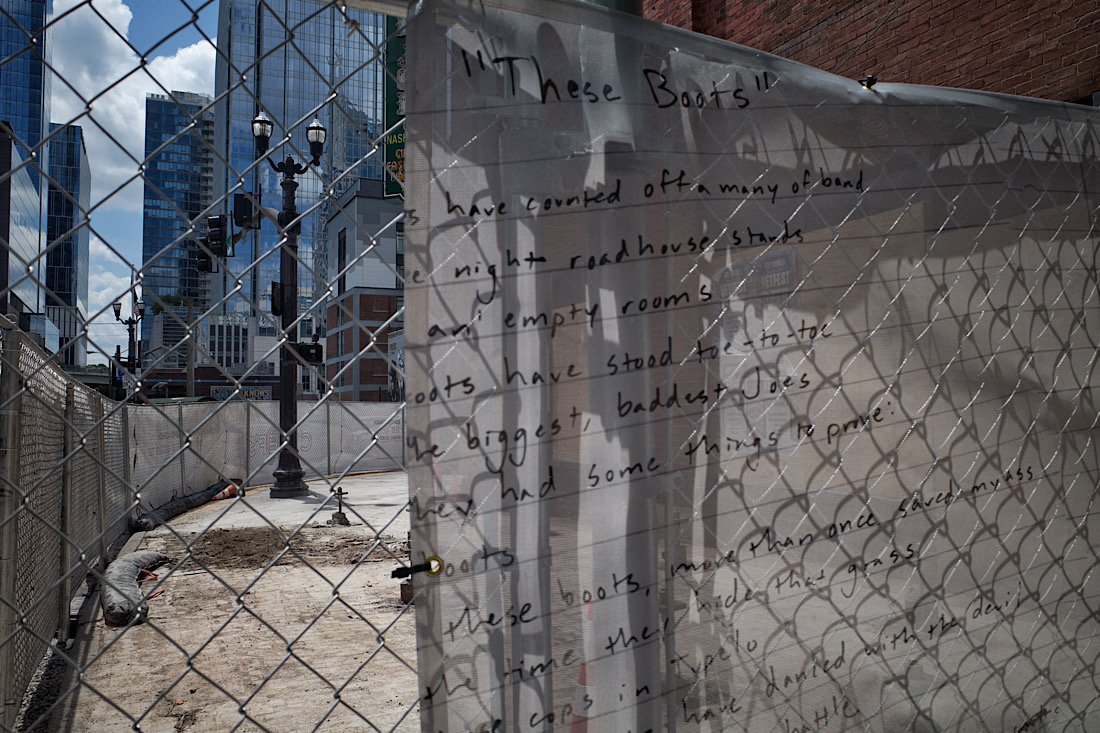 "These Boots"
s have counted off a many of band
e night roadhouse stands
an' empty rooms
oots have stood toe-to-toe
he biggest, baddest Joes
hey had some things to prove:
boots
these boots, more than once saved my ass
the time they hide that grass
cops in Tupelo
have danced with the devil
bottle
NASH
KNOWS